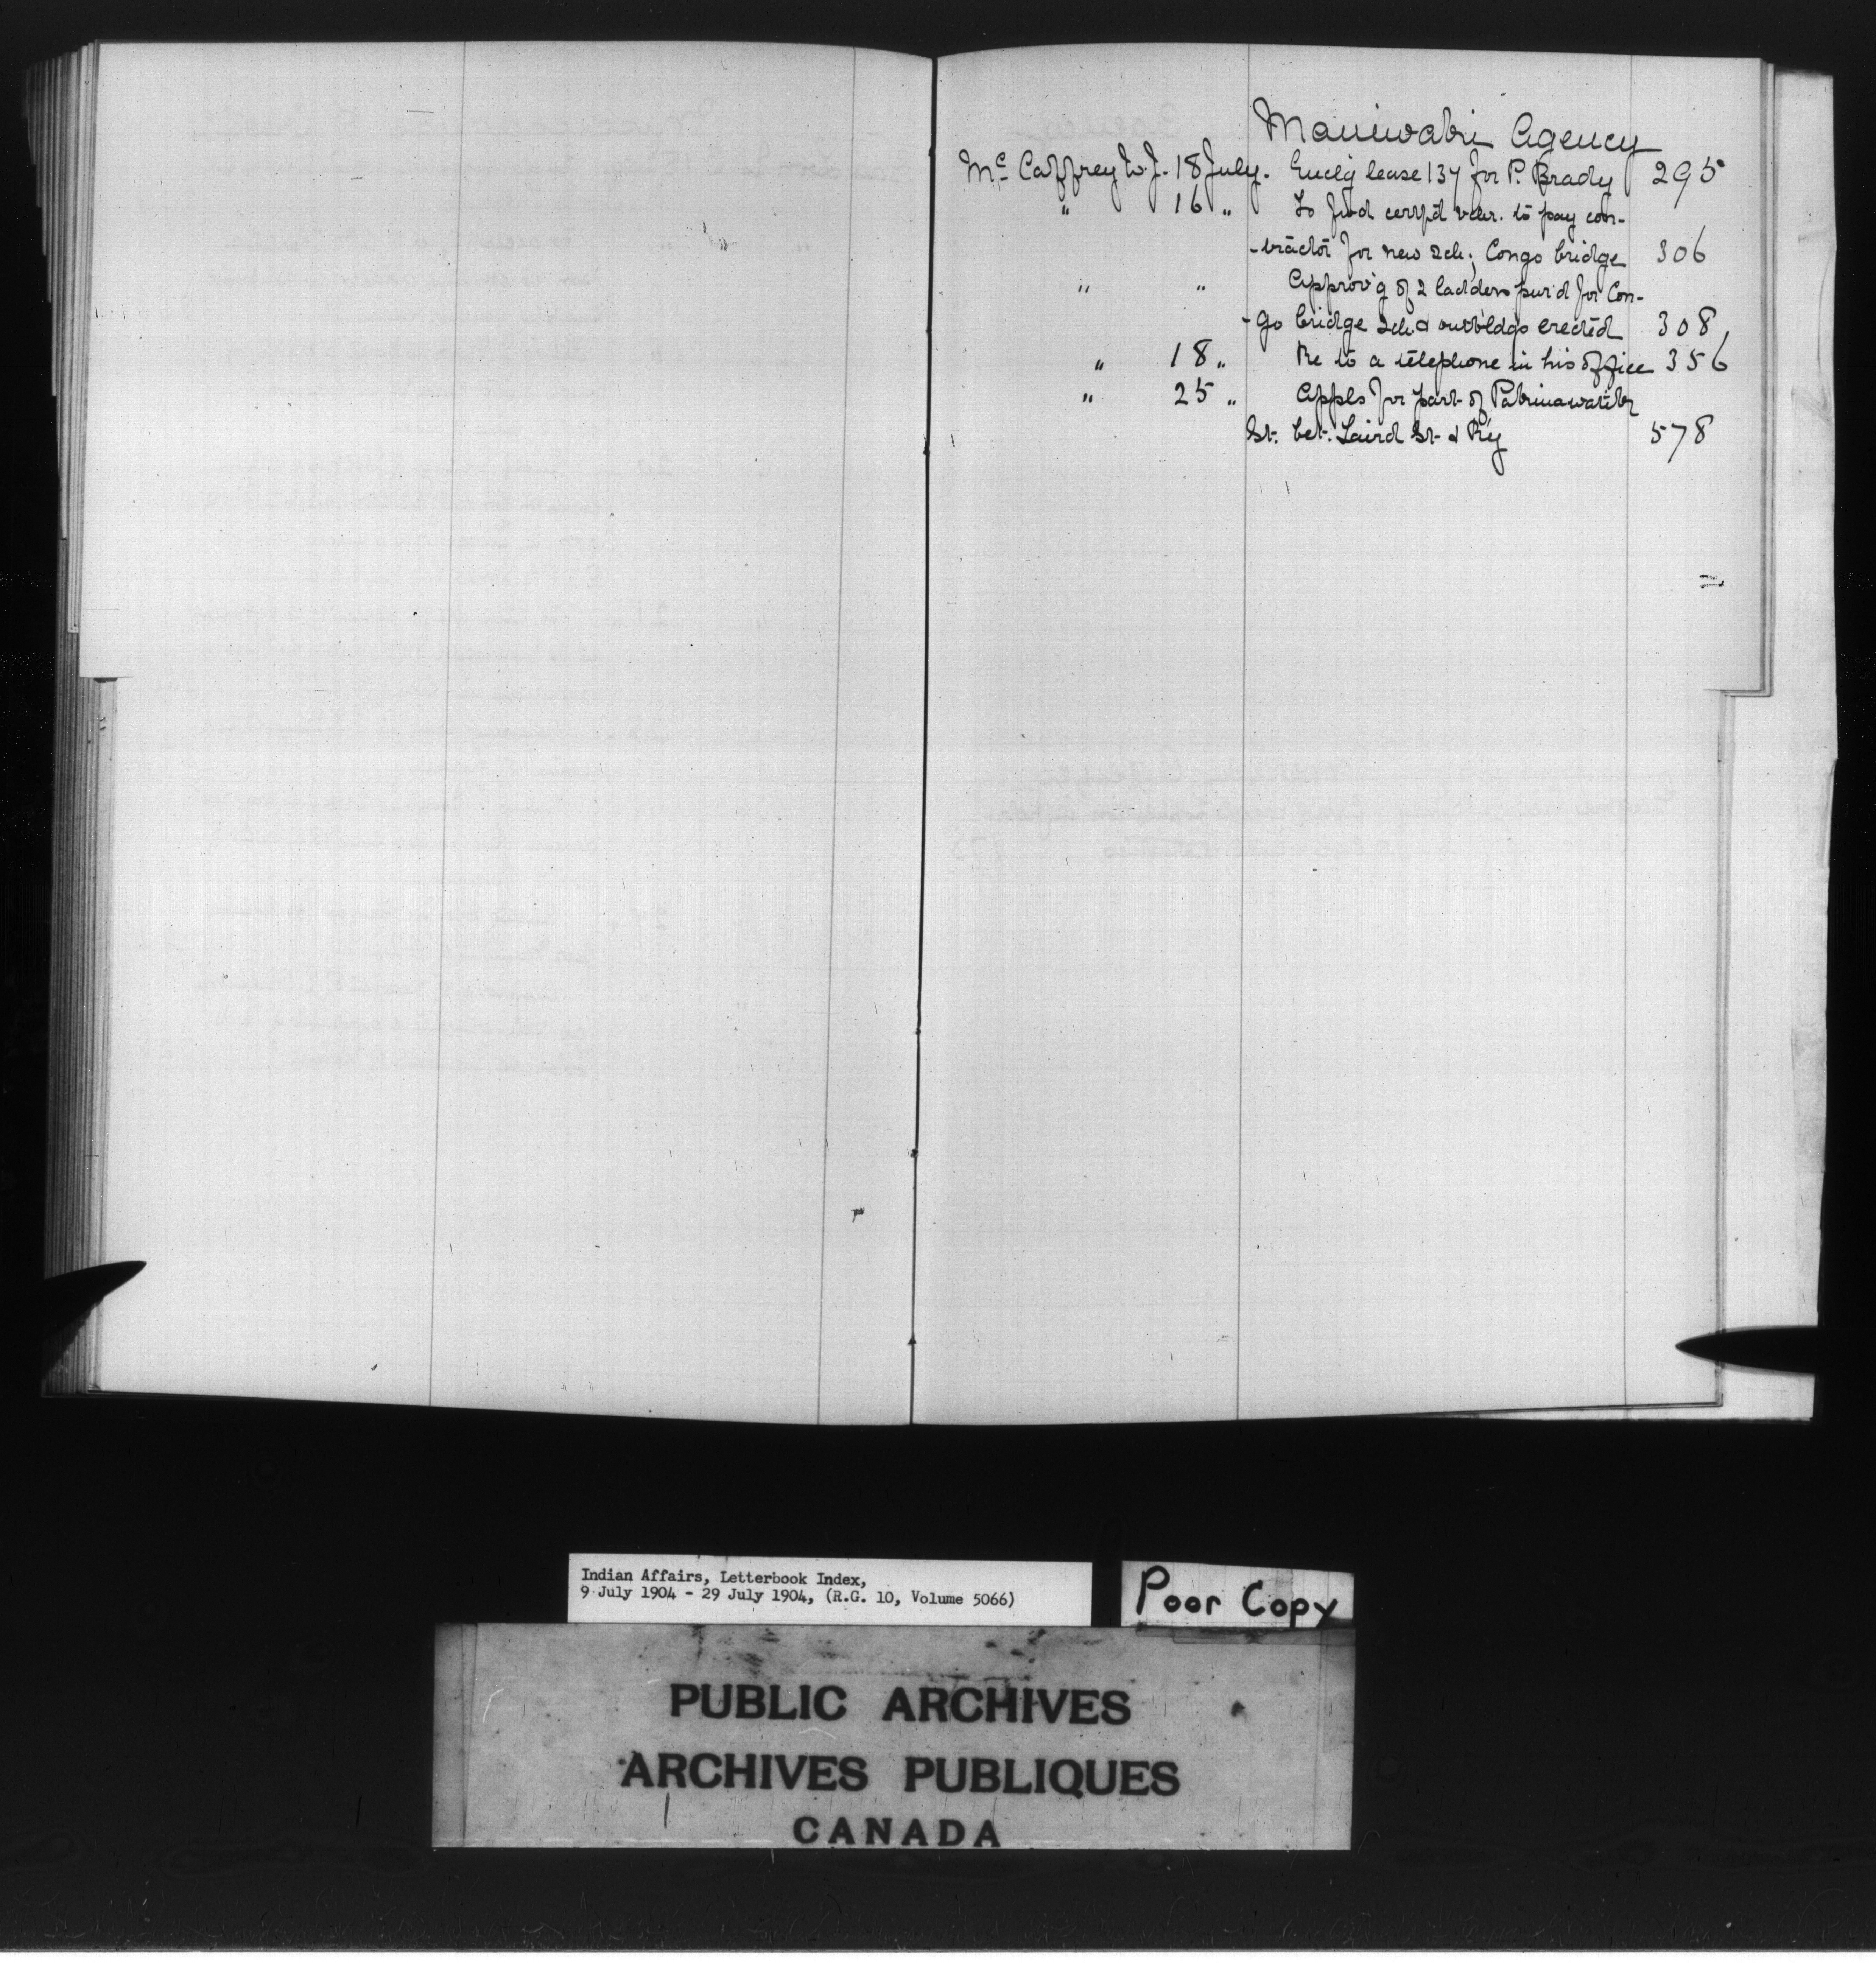 Maniwaki Agency
Mc Caffrey W.J. 18 July. Encl'g lease 137 for P. Brady 295
" 16 " To fwd cert'd vchr. to pay con-
-tractor for new sch; Congo bridge 306
" " Approv'g of 2 ladders pur'd for Con-
-go bridge sch & outbldgs erected 308
" 18 " Re to a telephone in his office 356
" 25 " Appls for part of
St. bet. Laird St. & Ry 578
Indian Affairs, Letterbook Index,
9 July 1904 - 29 July 1904, (R.G. 10, Volume 5066)
Poor Copy
PUBLIC ARCHIVES
ARCHIVES PUBLIQUES
CANADA